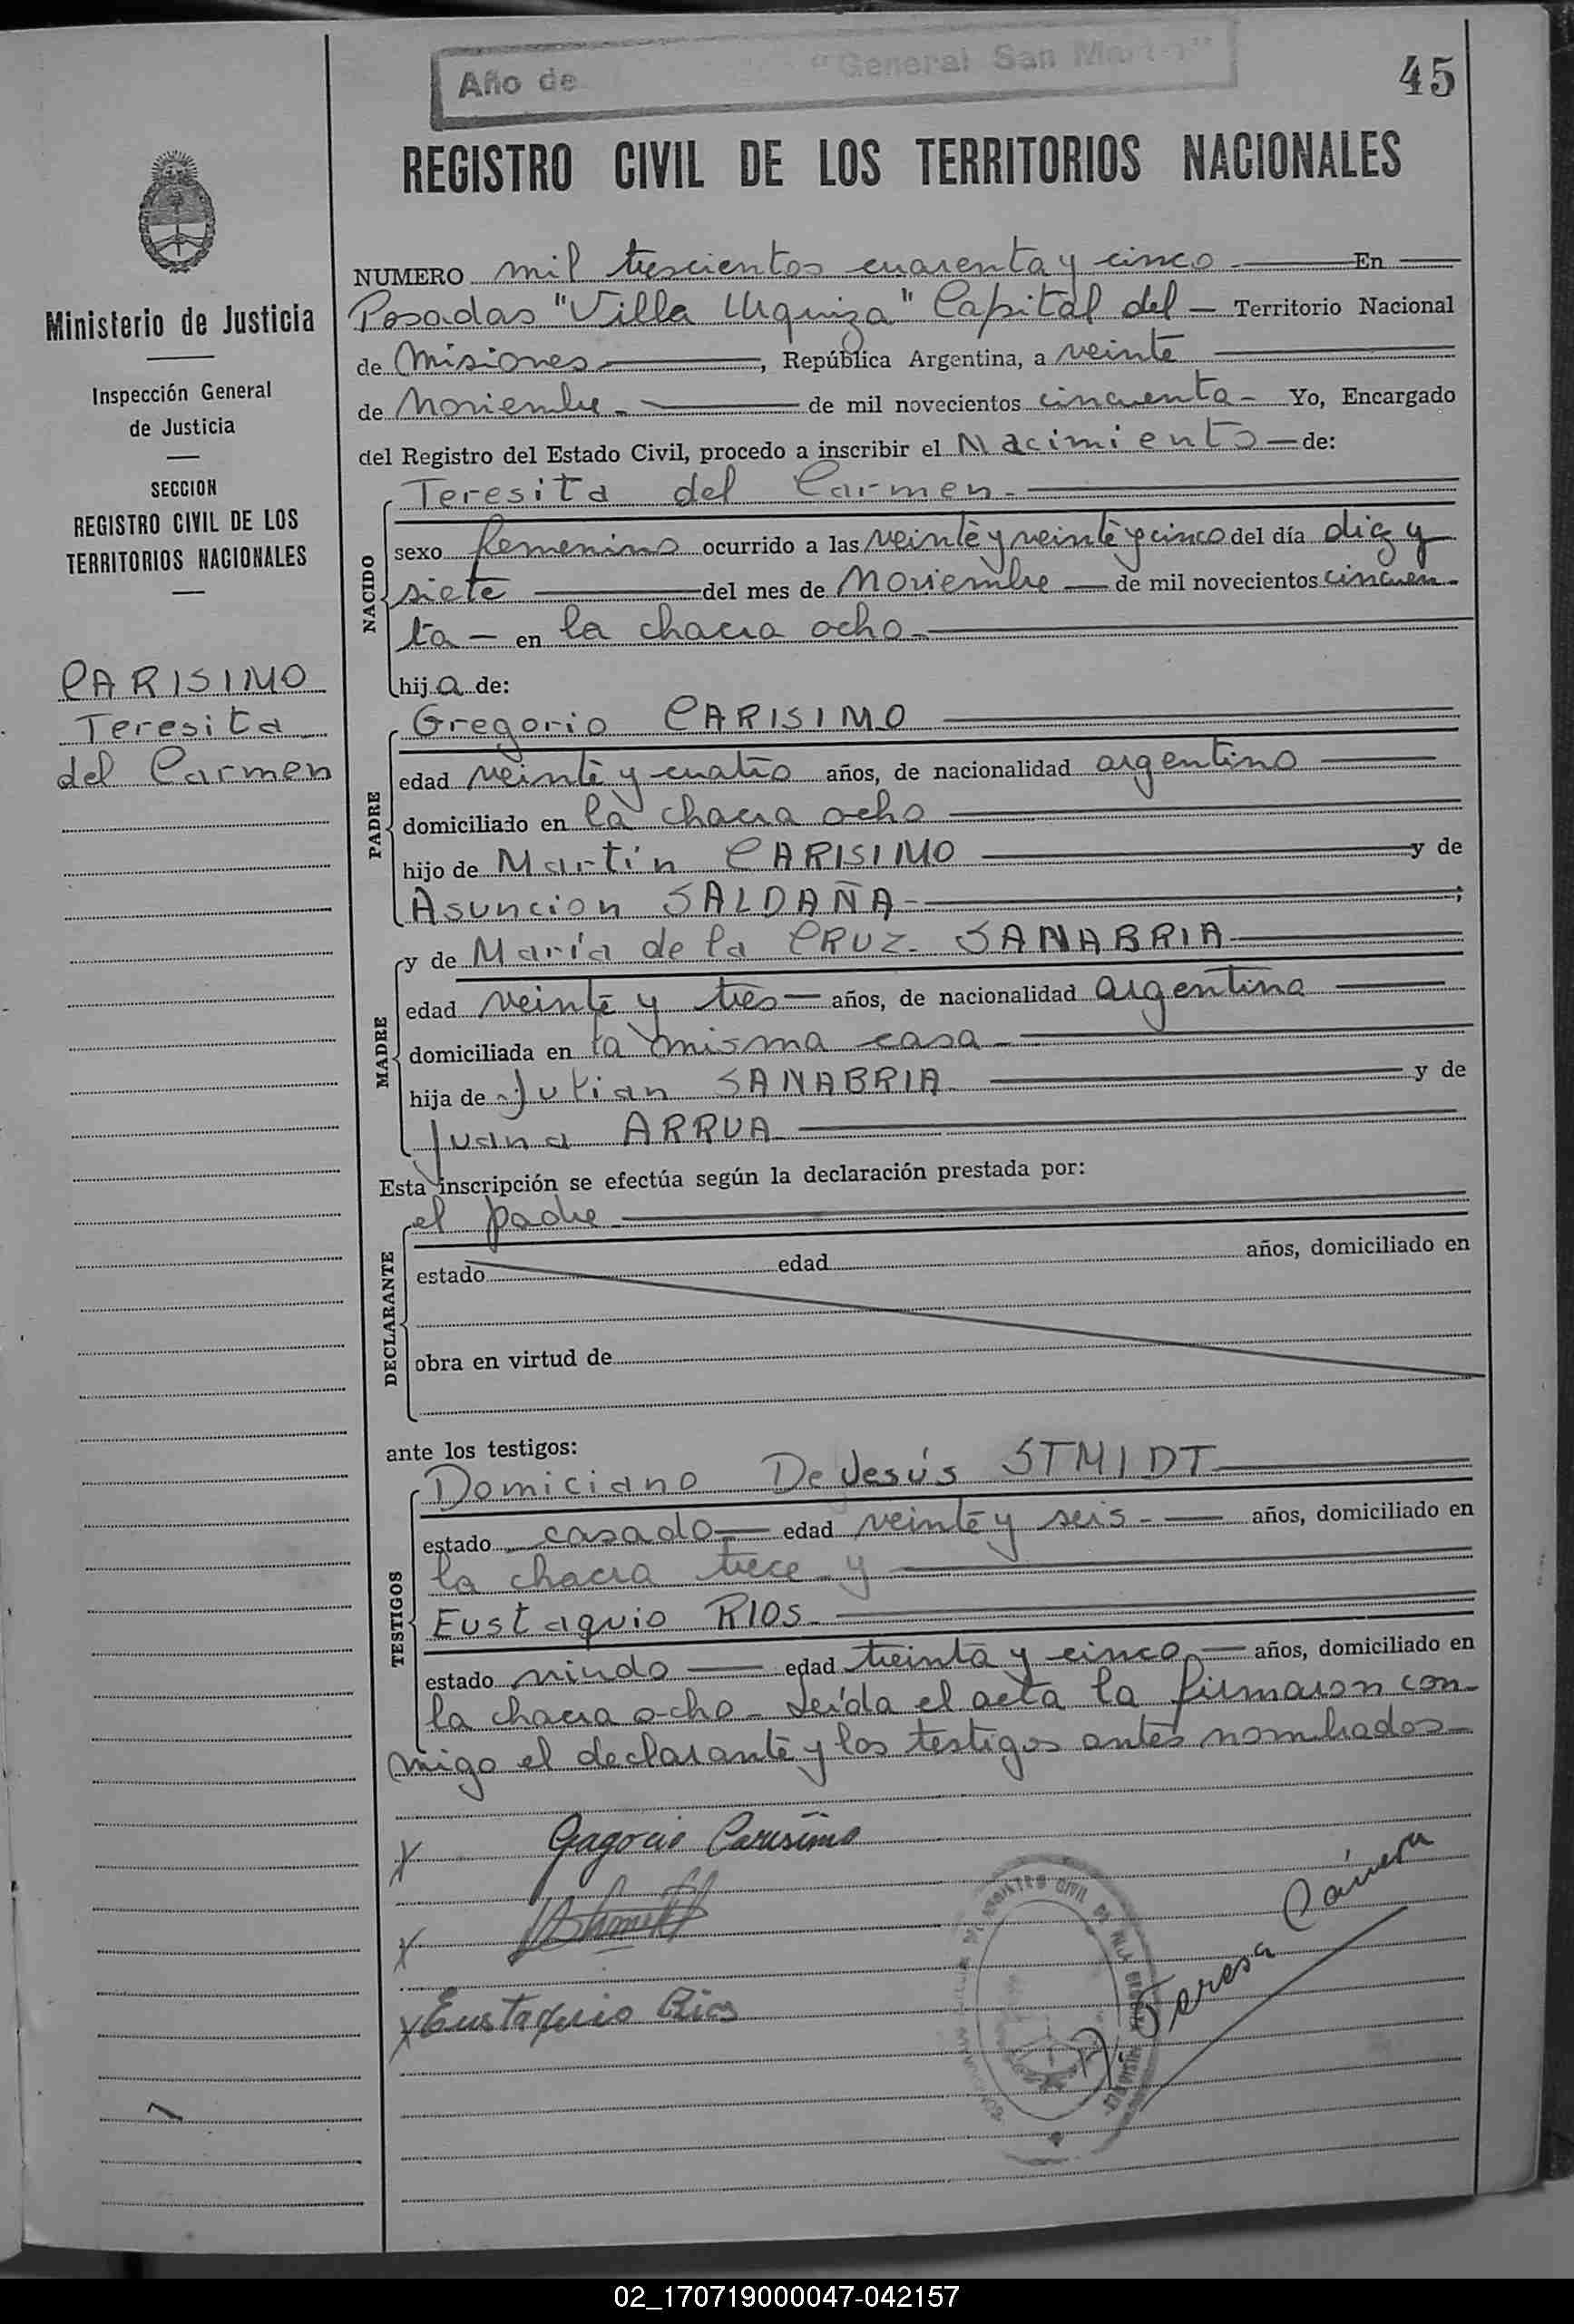 Año de "General San Martín"
45
REGISTRO CIVIL DE LOS TERRITORIOS NACIONALES
Ministerio de Justicia
Inspección General
de Justicia
SECCION
REGISTRO CIVIL DE LOS
TERRITORIOS NACIONALES
CARISIMO
Teresita
del Carmen
NUMERO mil trescientos cuarenta y cinco - En
Posadas "Villa Urquiza" Capital del - Territorio Nacional
de Misiones, República Argentina, a veinte
de Noviembre - de mil novecientos cincuenta - Yo, Encargado
del Registro del Estado Civil, procedo a inscribir el Nacimiento - de:
NACIDO
Teresita del Carmen -
sexo femenino ocurrido a las veinte y veinte y cinco del día diez y
siete del mes de Noviembre - de mil novecientos cincuen-
ta - en la chacra ocho -
hij a de:
PADRE
Gregorio CARISIMO
edad veinte y cuatro años, de nacionalidad argentino
domiciliado en la chacra ocho
hijo de Martín CARISIMO y de
Asuncion SALDAÑA - ;
MADRE
y de María de la CRUZ - SANABRIA
edad veinte y tres - años, de nacionalidad argentina
domiciliada en la misma casa -
hija de Julian SANABRIA - y de
Juana ARRUA
Esta inscripción se efectúa según la declaración prestada por:
DECLARANTE
el padre
estado edad años, domiciliado en
obra en virtud de
ante los testigos:
TESTIGOS
Domiciano De Jesús STMIDT
estado casado - edad veinte y seis - años, domiciliado en
la chacra trece - y
Eustaquio RIOS -
estado viudo - edad treinta y cinco - años, domiciliado en
la chacra ocho - Leída el acta la firmaron con-
migo el declarante y los testigos antes nombrados -
X Gregorio Carisimo
X
X Eustaquio Rios
REGISTRO CIVIL DE VILLA
Teresa
02_170719000047-042157